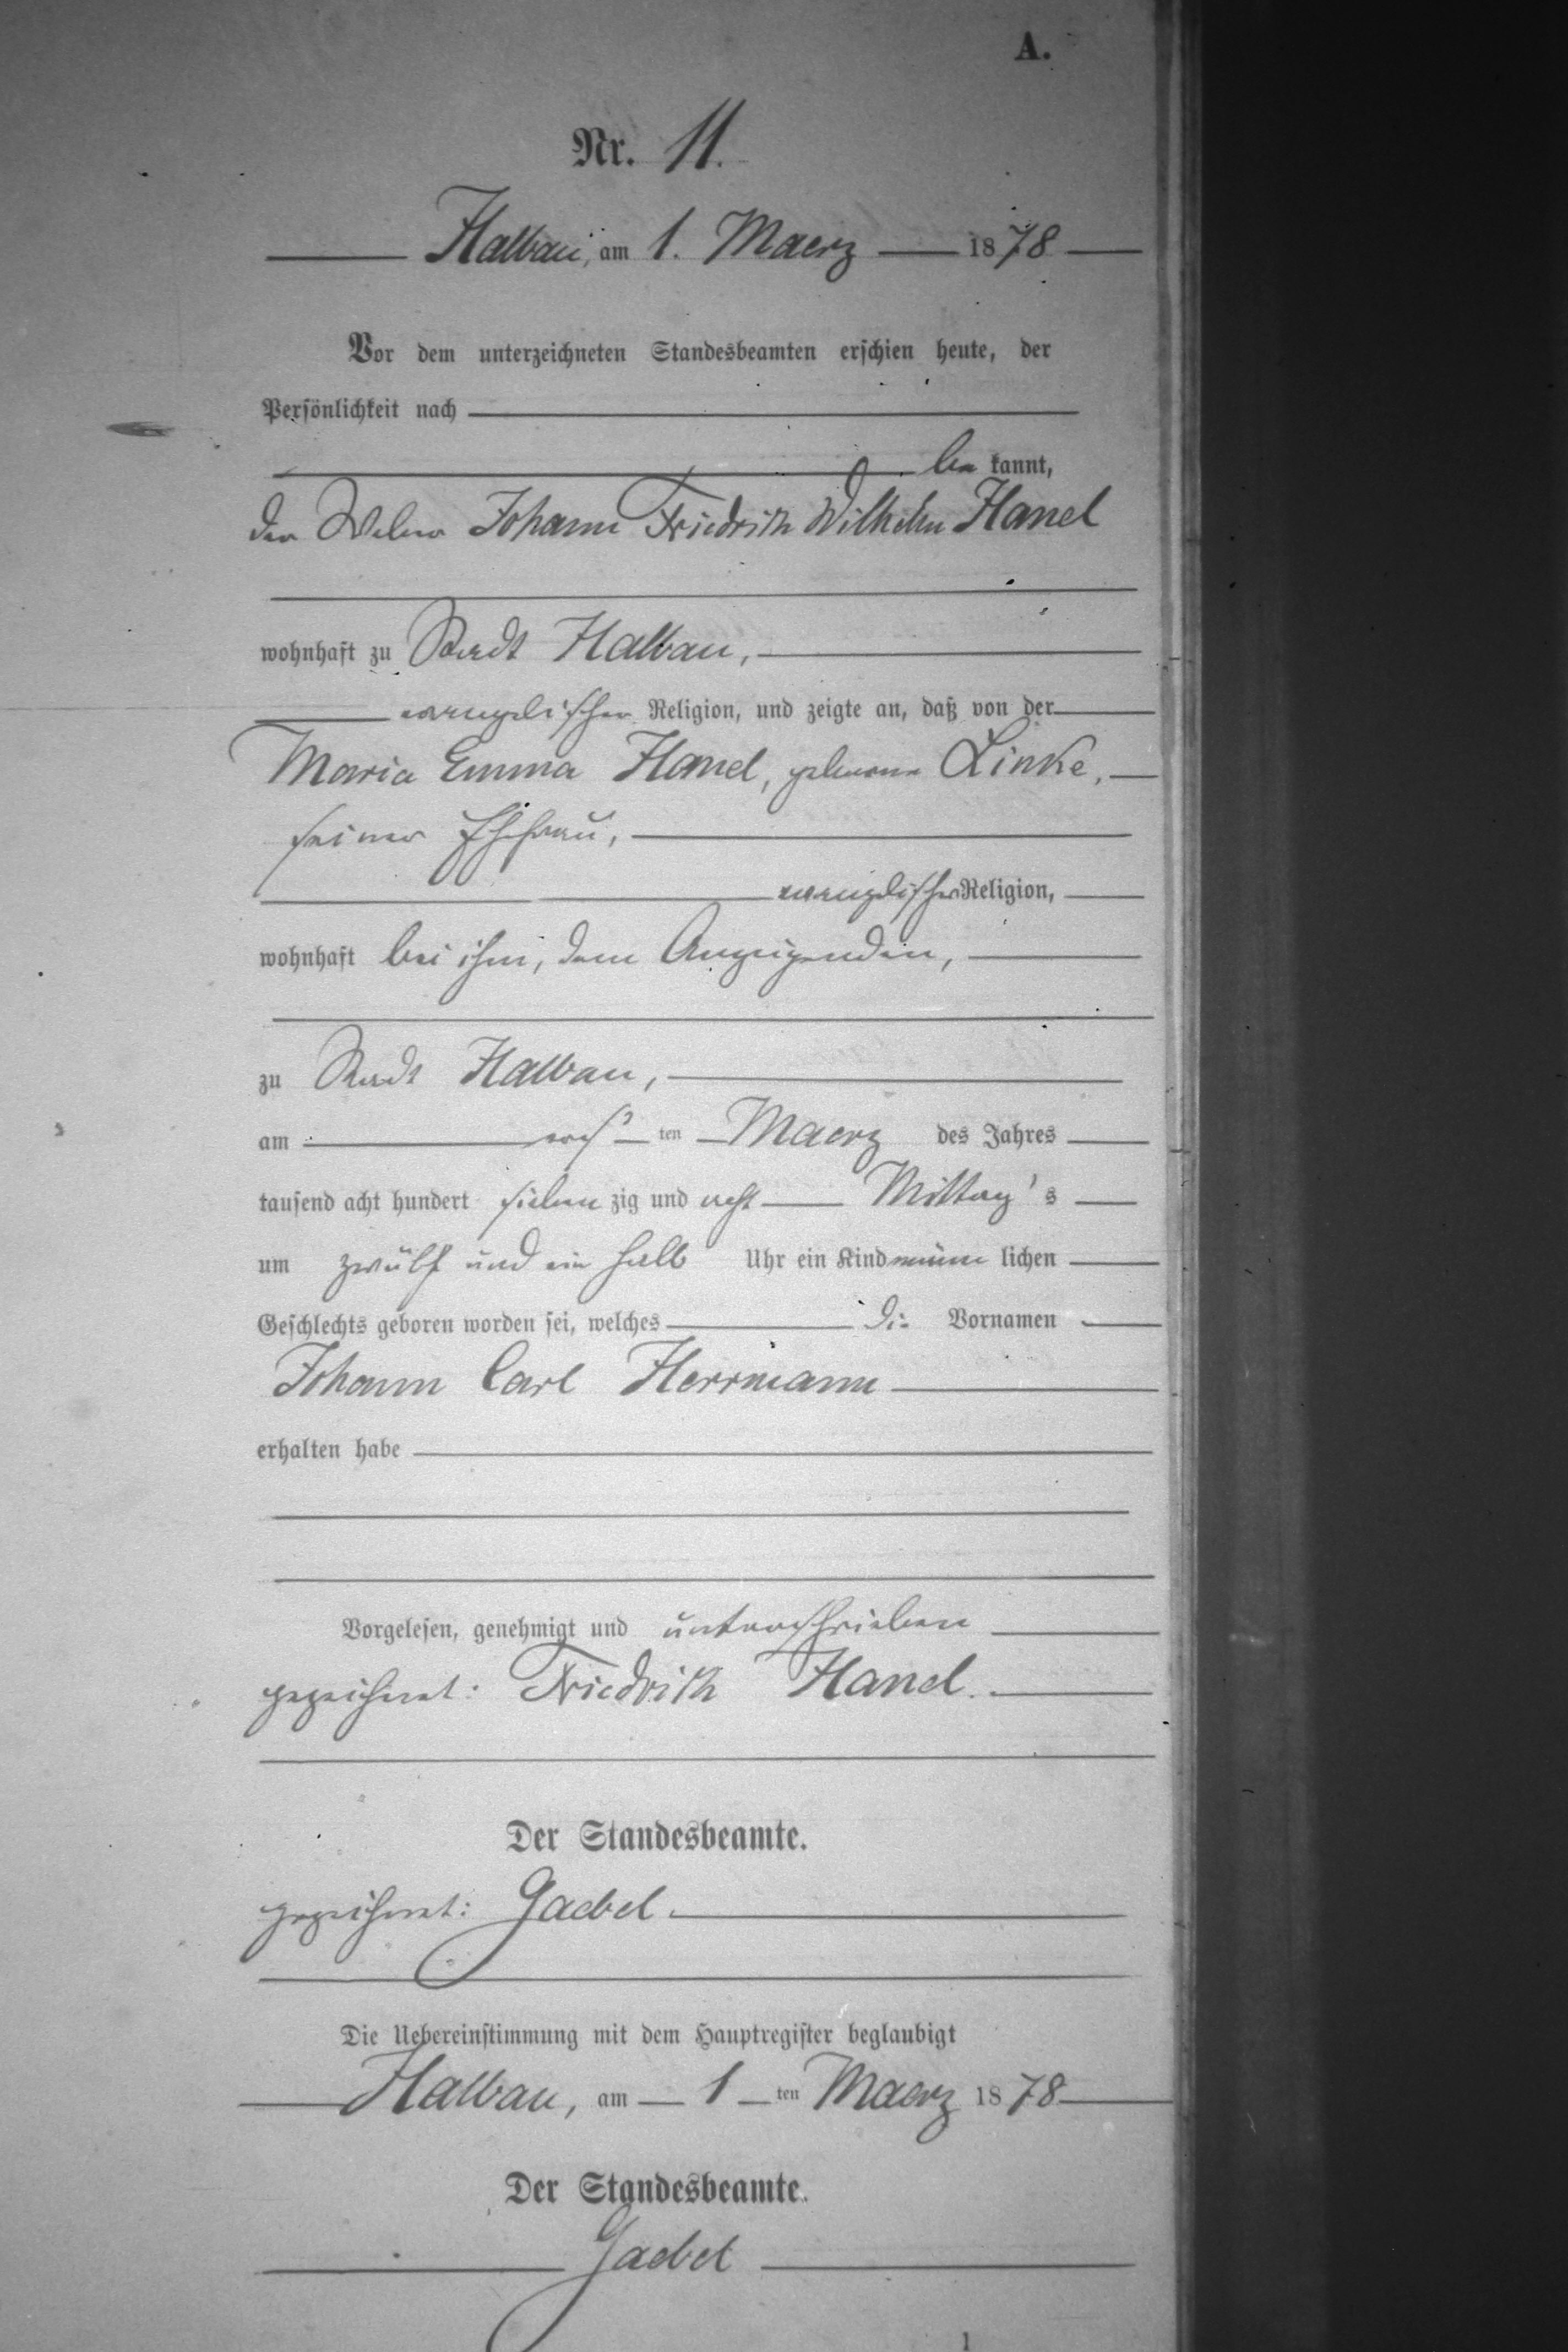 A.
Nr. 11.
Halbau, am 1. Maerz 1878
Vor dem unterzeichneten Standesbeamten erschien heute, der
Persönlichkeit nach
be kannt,
der Weber Johann Friedrich Wilhelm Hanel
wohnhaft zu Stadt Halbau,
evangelischer Religion, und zeigte an, daß von der
Maria Emma Hanel, geborene Linke,
seiner Ehefrau,
evangelischer Religion,
wohnhaft bei ihm, dem Anzeigenden,
zu Stadt Halbau,
am ersten Maerz des Jahres
tausend acht hundert siebenzig und acht Mittag's
um zwölf und ein halb Uhr ein Kind männlichen
Geschlechts geboren worden sei, welches die Vornamen
Johann Carl Herrmann
erhalten habe
Vorgelesen, genehmigt und unterschrieben
gezeichnet: Friedrich Hanel.
Der Standesbeamte.
gezeichnet: Gaebel.
Die Uebereinstimmung mit dem Hauptregister beglaubigt
Halbau, am 1ten Maerz 1878
Der Standesbeamte.
Gaebel
1